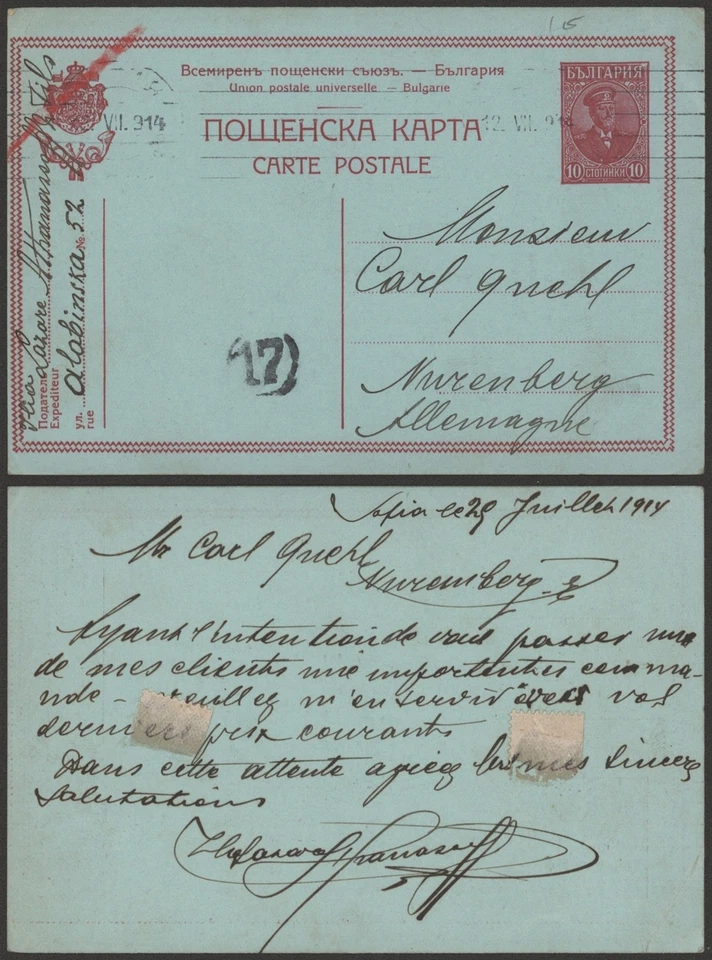 15
Всемиренъ пощенски съюзъ. — България
Union postale universelle — Bulgarie
ПОЩЕНСКА КАРТА
CARTE POSTALE
БЪЛГАРИЯ
10 СТОТИНКИ 10
VII. 914
12. VII. 914
Lazare Athanasoff & Fils
Подател
Expéditeur
Alabinska № 52
ул.
rue
17
Monsieur
Carl Quehl
Nurenberg
Allemagne
Sofia le 29 Juillet 1914
Mr Carl Quehl
Nuremberg
Ayant l'intention de vous passer une
de mes clients une importantes comma-
nde - veuillez m'enservir avec vos
derniers prix courants
Dans cette attente agieez les mes sinceres
salutations